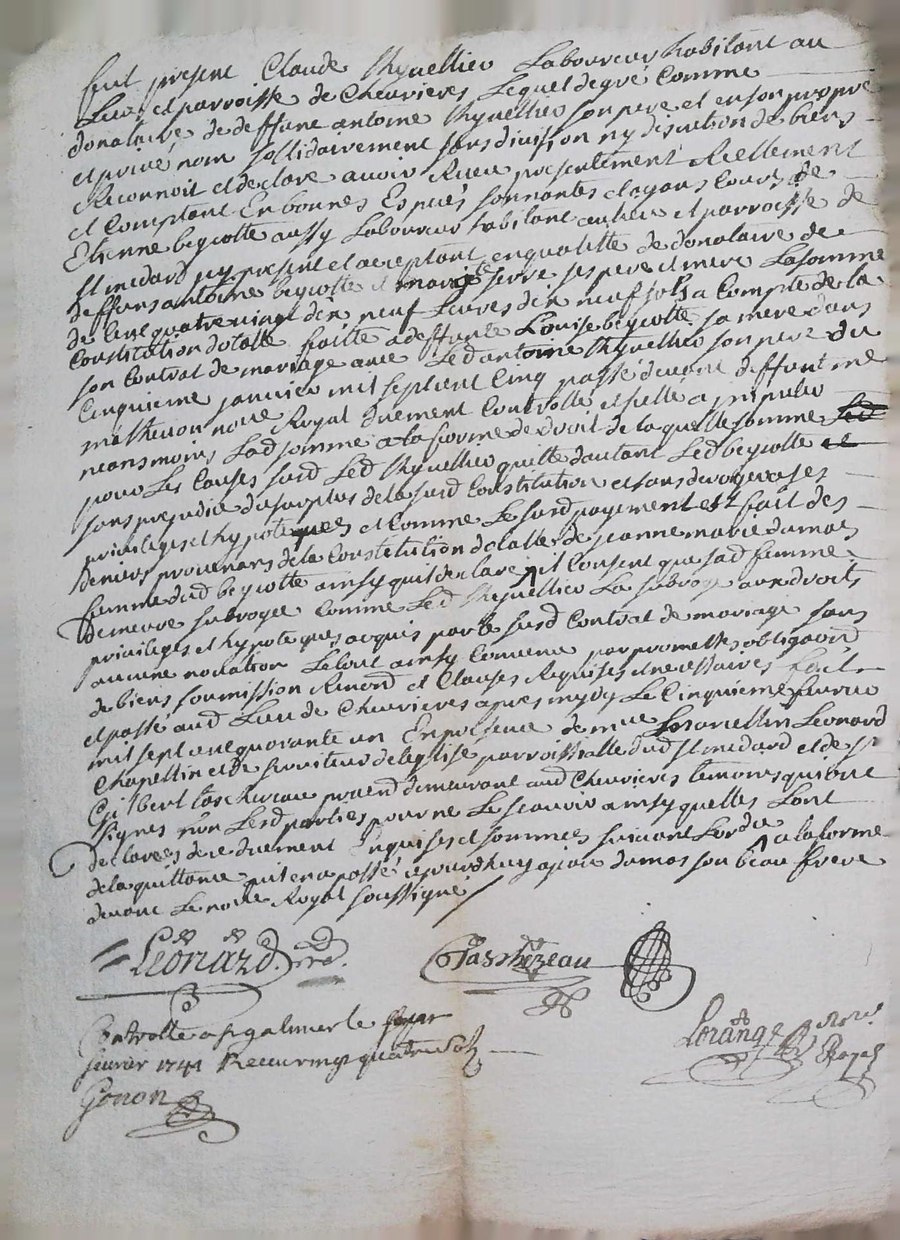 fut présent Claude Thyvellier Laboureur habitant au
Lieu et parroisse de Chevrieres Lequel de gré Comme
donataire de deffunt antoine Thyvellier son pere et en son propre
et privé nom sollidairement sans division ny discution de biens
Reconnoit et declare avoir Receu presentement Reellement
et Comptant En bonnes Especes sonnantes et ayans Cours de
Etienne beyzotte aussy Laboureur habitant au lieu et parroisse de
St medard icy present et acceptant en qualitté de donataire de
deffuns antoine beyzotte et marie serre ses pere et mere La somme
de Cent quatre vingt dix neuf Livres dix neuf sols a Compte de la
Constitution dotalle faitte a deffunte Louise beyzotte sa mere dans
son Contrat de mariage avec Led antoine Thyvellier son pere du
Cinquieme janvier mil sept cent Cinq passé devant deffunt me
mathevon no.re Royal duement Controllé et scellé a jmputer
neansmoins Lad somme a la forme de droit de laquelle somme
pour Les Causes susd Led Thyvellier quitte dautant Led beyzotte
sans prejudice du surplus de la susd Constitution et sans deroger a ses
privileges et hypoteques et Comme Le susd payement est fait des
deniers provenans de la Constitution dotalle de jeanne marie damas
femme dud beyzotte ainsy quil declare il Consent que sad femme
demeure subrogée Comme Led Thyvellier La subroge aux droits
privileges et hypoteques acquis par le susd Contrat de mariage sans
aucune novation Le tout ainsy Convenu par promesse obligaõn
de biens soumission Renonõn et Clauses Requises et necessaires fait
et passé aud Lieu de Chevrieres apres mydy Le Cinquieme fevrier
mil sept cent quarante un En presence de m.re Marcellin Leonard
Chapellin et de serviteur de leglise parroissialle dud St medard et de sr
Gilbert taschereau praticien demeurant aud Chevrieres temoins qui ont
signés non Lesd parties pour ne Le scavoir ainsy quelles L'ont
declarées de ce duement Enquises et sommées suivant Lord.ce a la forme
de la quittance quil en a passé ce jourdhuy a jean damas son beau frere
devant Le no.re Royal soussigné
Leonard p.re
Taschereau
Lorange No.re Royal
Controllé a St galmier le
fevrier 1741 Receu vingt quatre sols
Gonon